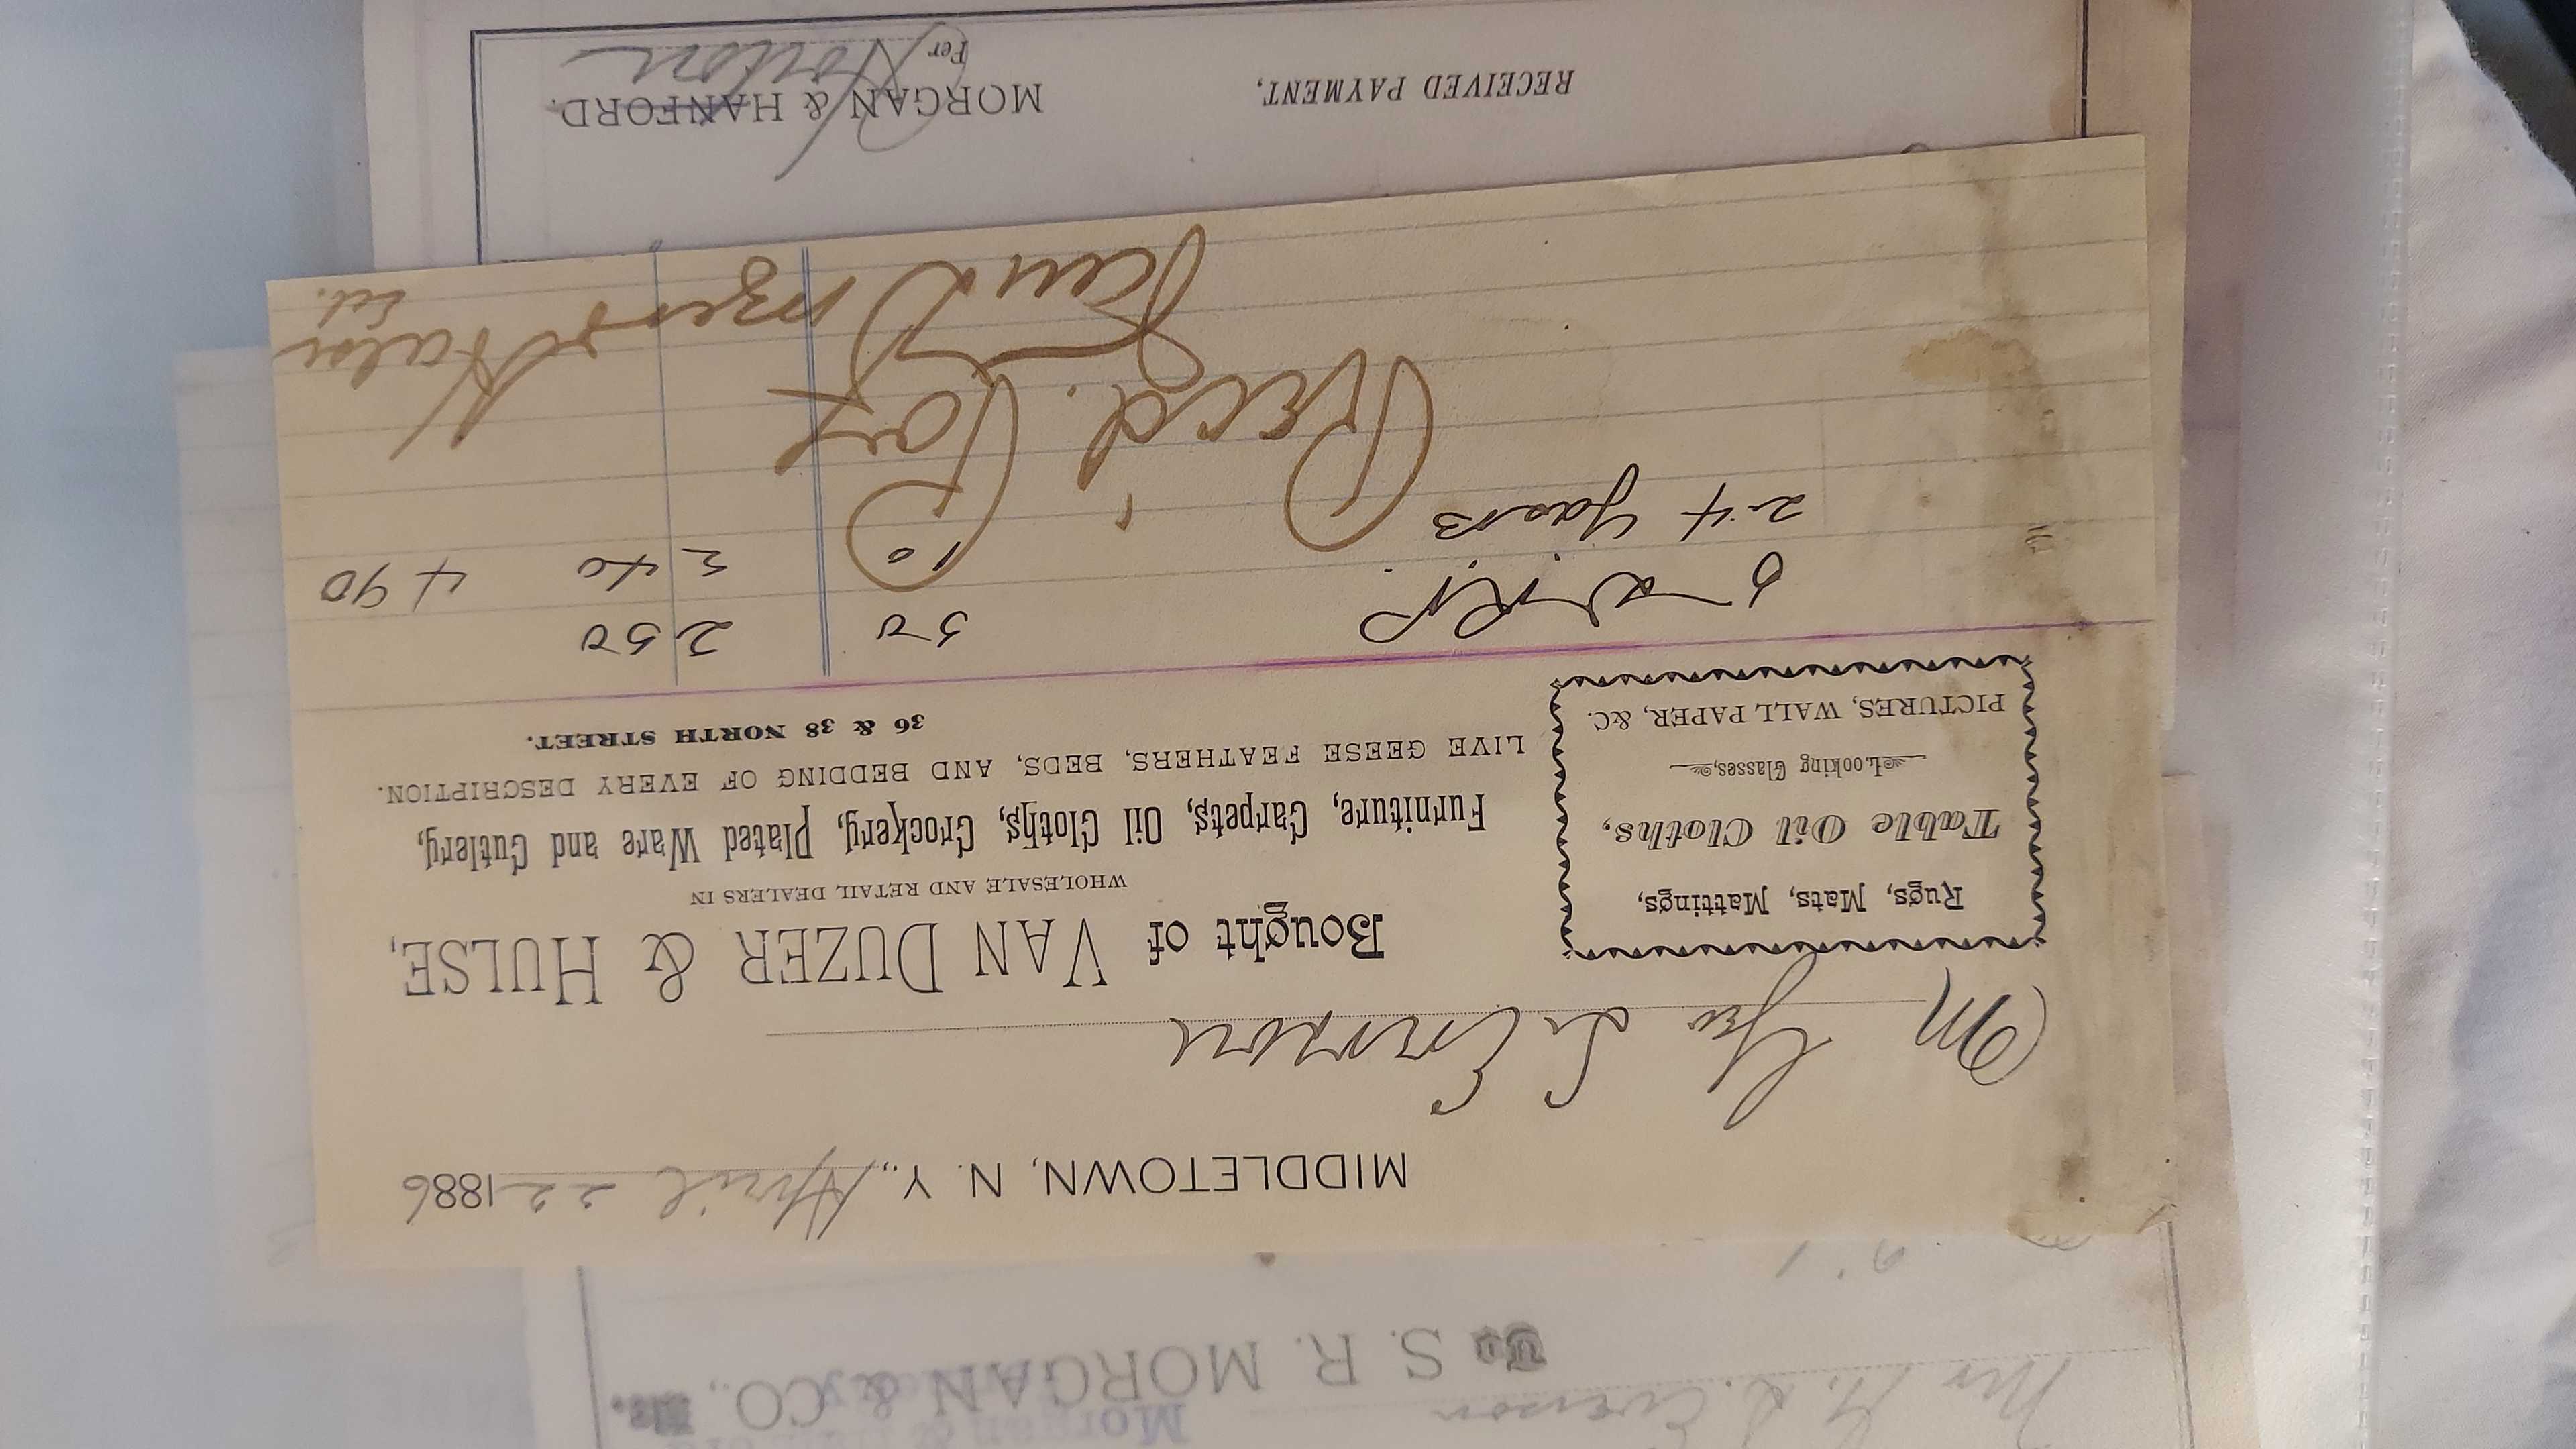 Mr G. L. Everson
To S. R. MORGAN & CO.,
MIDDLETOWN, N. Y., April 22 1886
M Geo L. Everson
Bought of VAN DUZER & HULSE,
WHOLESALE AND RETAIL DEALERS IN
Furniture, Carpets, Oil Cloths, Crockery, Plated Ware and Cutlery,
LIVE GEESE FEATHERS, BEDS, AND BEDDING OF EVERY DESCRIPTION.
36 & 38 NORTH STREET.
Rugs, Mats, Mattings,
Table Oil Cloths,
Looking Glasses,
PICTURES, WALL PAPER, &C.
50 2 50
24 Yards 10 2 40 4 90
Recd. Payt
Van Duzer & Hulse
RECEIVED PAYMENT,
MORGAN & HANFORD.
Per Horton